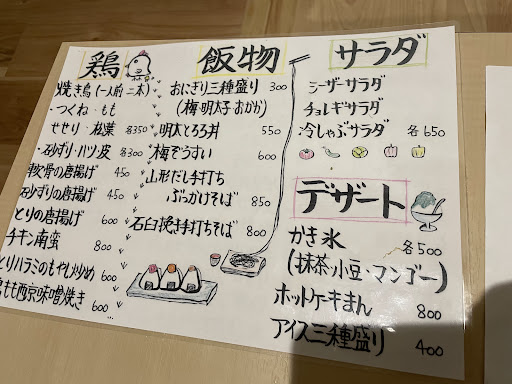 鶏
焼き鳥(一人前 二本)
・つくね・もも
せせり・松葉 各350
・砂ずり・ハツ・皮 各300
軟骨の唐揚げ 450
砂ずりの唐揚げ 450
とりの唐揚げ 600
チキン南蛮 800
とりハラミのもやし炒め 600
もも西京味噌焼き 600
飯物
おにぎり三種盛り 300
(梅・明太子・おかか)
明太とろろ丼 550
梅ぞうすい 600
山形だし手打ち
ぶっかけそば 850
石臼挽き手打ちそば 800
サラダ
シーザーサラダ
チョレギサラダ
冷しゃぶサラダ 各650
デザート
かき氷 各500
(抹茶・小豆・マンゴー)
ホットケーキまん 800
アイス三種盛り 400